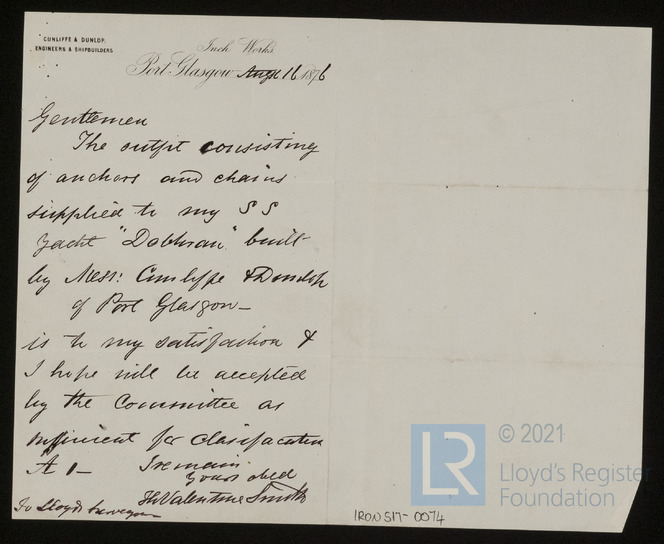 CUNLIFFE & DUNLOP,
ENGINEERS & SHIPBUILDERS
Inch Works
Port-Glasgow Augt 16 1876
Gentlemen
The outfit consisting
of anchors and chains
supplied to my S S
yacht "Dobhran" built
by Messrs: Cunliffe & Dunlop
of Port Glasgow—
is to my satisfaction &
I hope will be accepted
by the Committee as
sufficient for classification
A 1— I remain
Yours obed
Valentine Smith
To Lloyds Surveyor
IRON 517- 0074
LR
© 2021
Lloyd's Register
Foundation